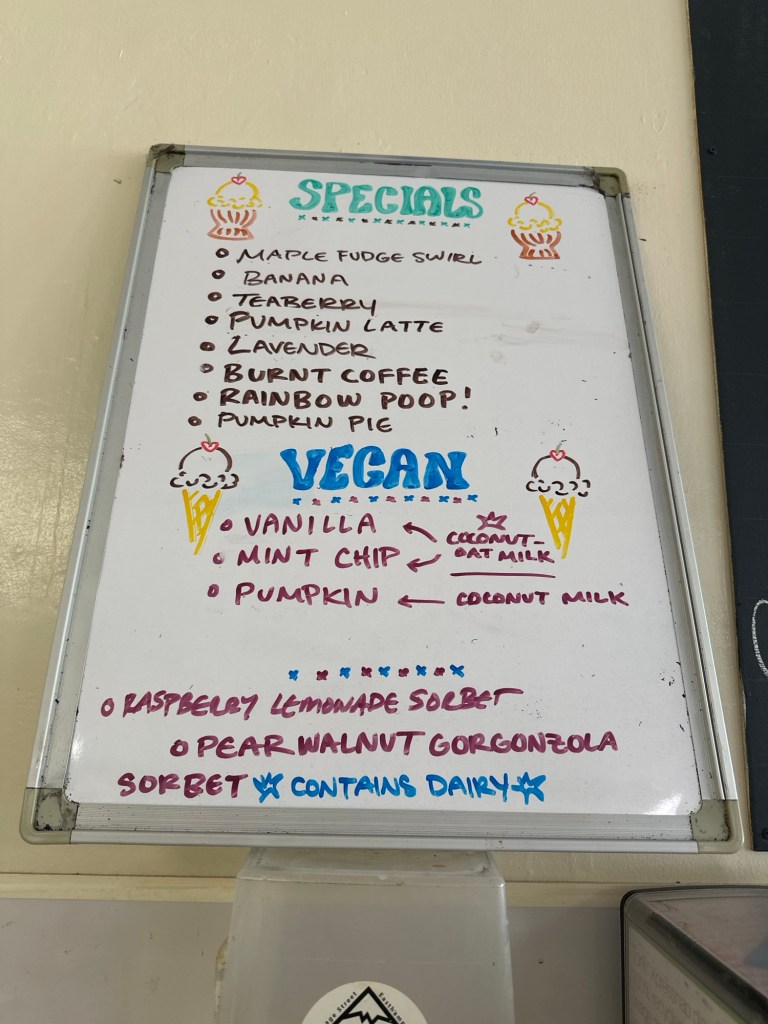 SPECIALS
MAPLE FUDGE SWIRL
BANANA
TEABERRY
PUMPKIN LATTE
LAVENDER
BURNT COFFEE
RAINBOW POOP!
PUMPKIN PIE
VEGAN
VANILLA
COCONUT-
OAT MILK
MINT CHIP
PUMPKIN
COCONUT MILK
RASPBERRY LEMONADE SORBET
PEAR WALNUT GORGONZOLA
SORBET CONTAINS DAIRY